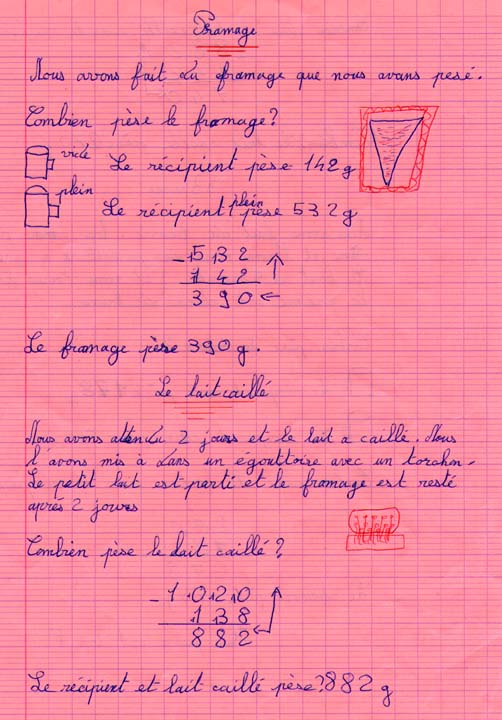 Framage
Nous avons fait du framage que nous avans pesé.
Combien pèse le framage?
vide
Le récipient pèse 142 g
plein
Le récipient plein pèse 532 g
- 5 13 2
1 4 2
3 9 0
Le framage pèse 390 g.
Le lait caillé
Nous avons attendu 2 jours et le lait a caillé. Nous
l'avons mis à dans un égouttoire avec un torchn.
Le petit lait est parti et le framage est resté
aprés 2 jours
Combien pèse le lait caillé?
- 1 0 2 0
1 3 8
8 8 2
Le récipient et lait caillé pèse? 882 g